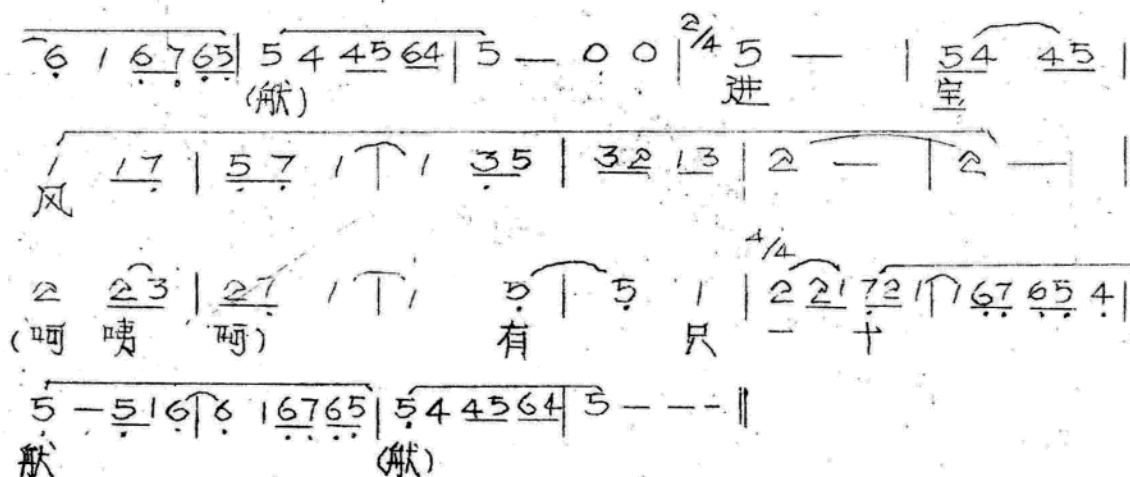 6 1 6765 | 5 4 45 64 | 5 — 0 0 | 2/4 5 — | 54 45 |
(猷) 进 宝
1 17 | 57 1 | 1 35 | 32 13 | 2 — | 2 — |
风
2 23 | 27 1 | 1 5 | 5 1 | 4/4 2 21 72 1 | 1 67 65 4 |
(呵 咦 呵) 有 只 一 十
5 — 51 6 | 6 1 67 65 | 5 4 45 64 | 5 — — — ‖